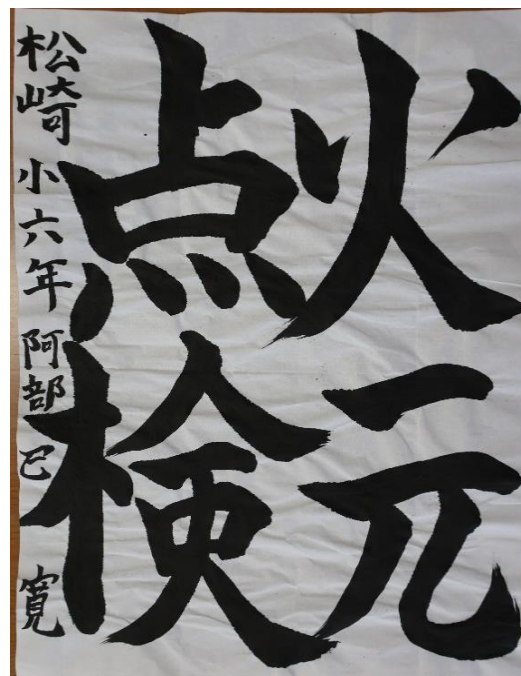 火元
点検
松崎小六年阿部巳寛